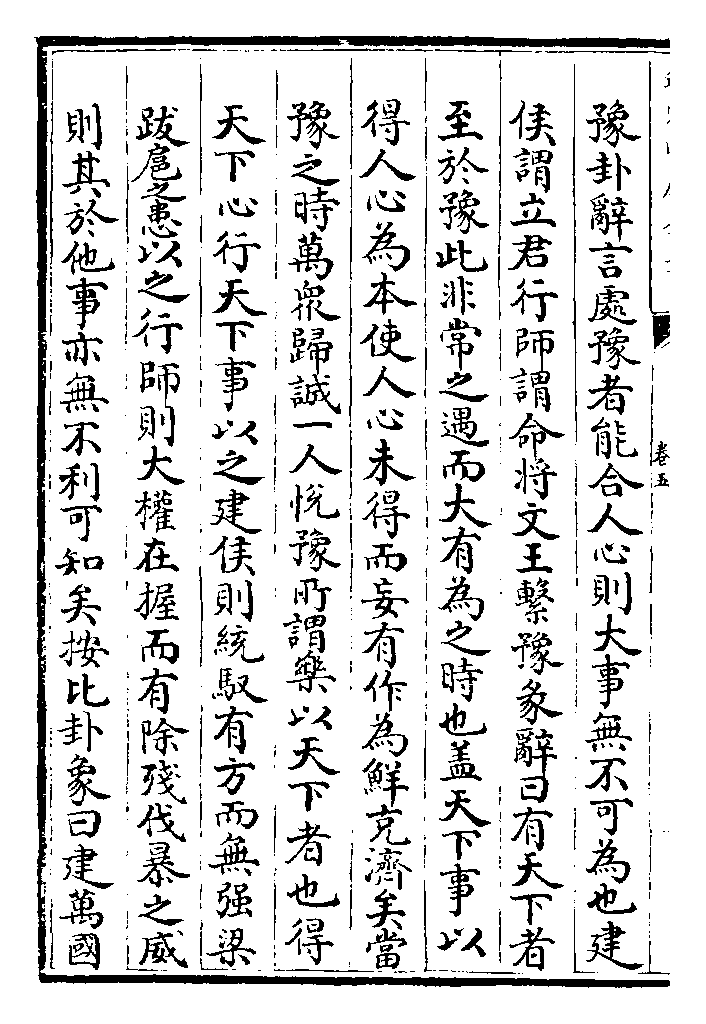 卷五
豫卦辭言處豫者能合人心則大事無不可為也建
侯謂立君行師謂命将文王繫豫彖辭曰有天下者
至於豫此非常之遇而大有為之時也盖天下事以
得人心為本使人心未得而妄有作為鮮克濟矣當
豫之時萬衆歸誠一人悅豫所謂樂以天下者也得
天下心行天下事以之建侯則統馭有方而無强梁
跋扈之患以之行師則大權在握而有除殘伐暴之威
則其於他事亦無不利可知矣按比卦象曰建萬國